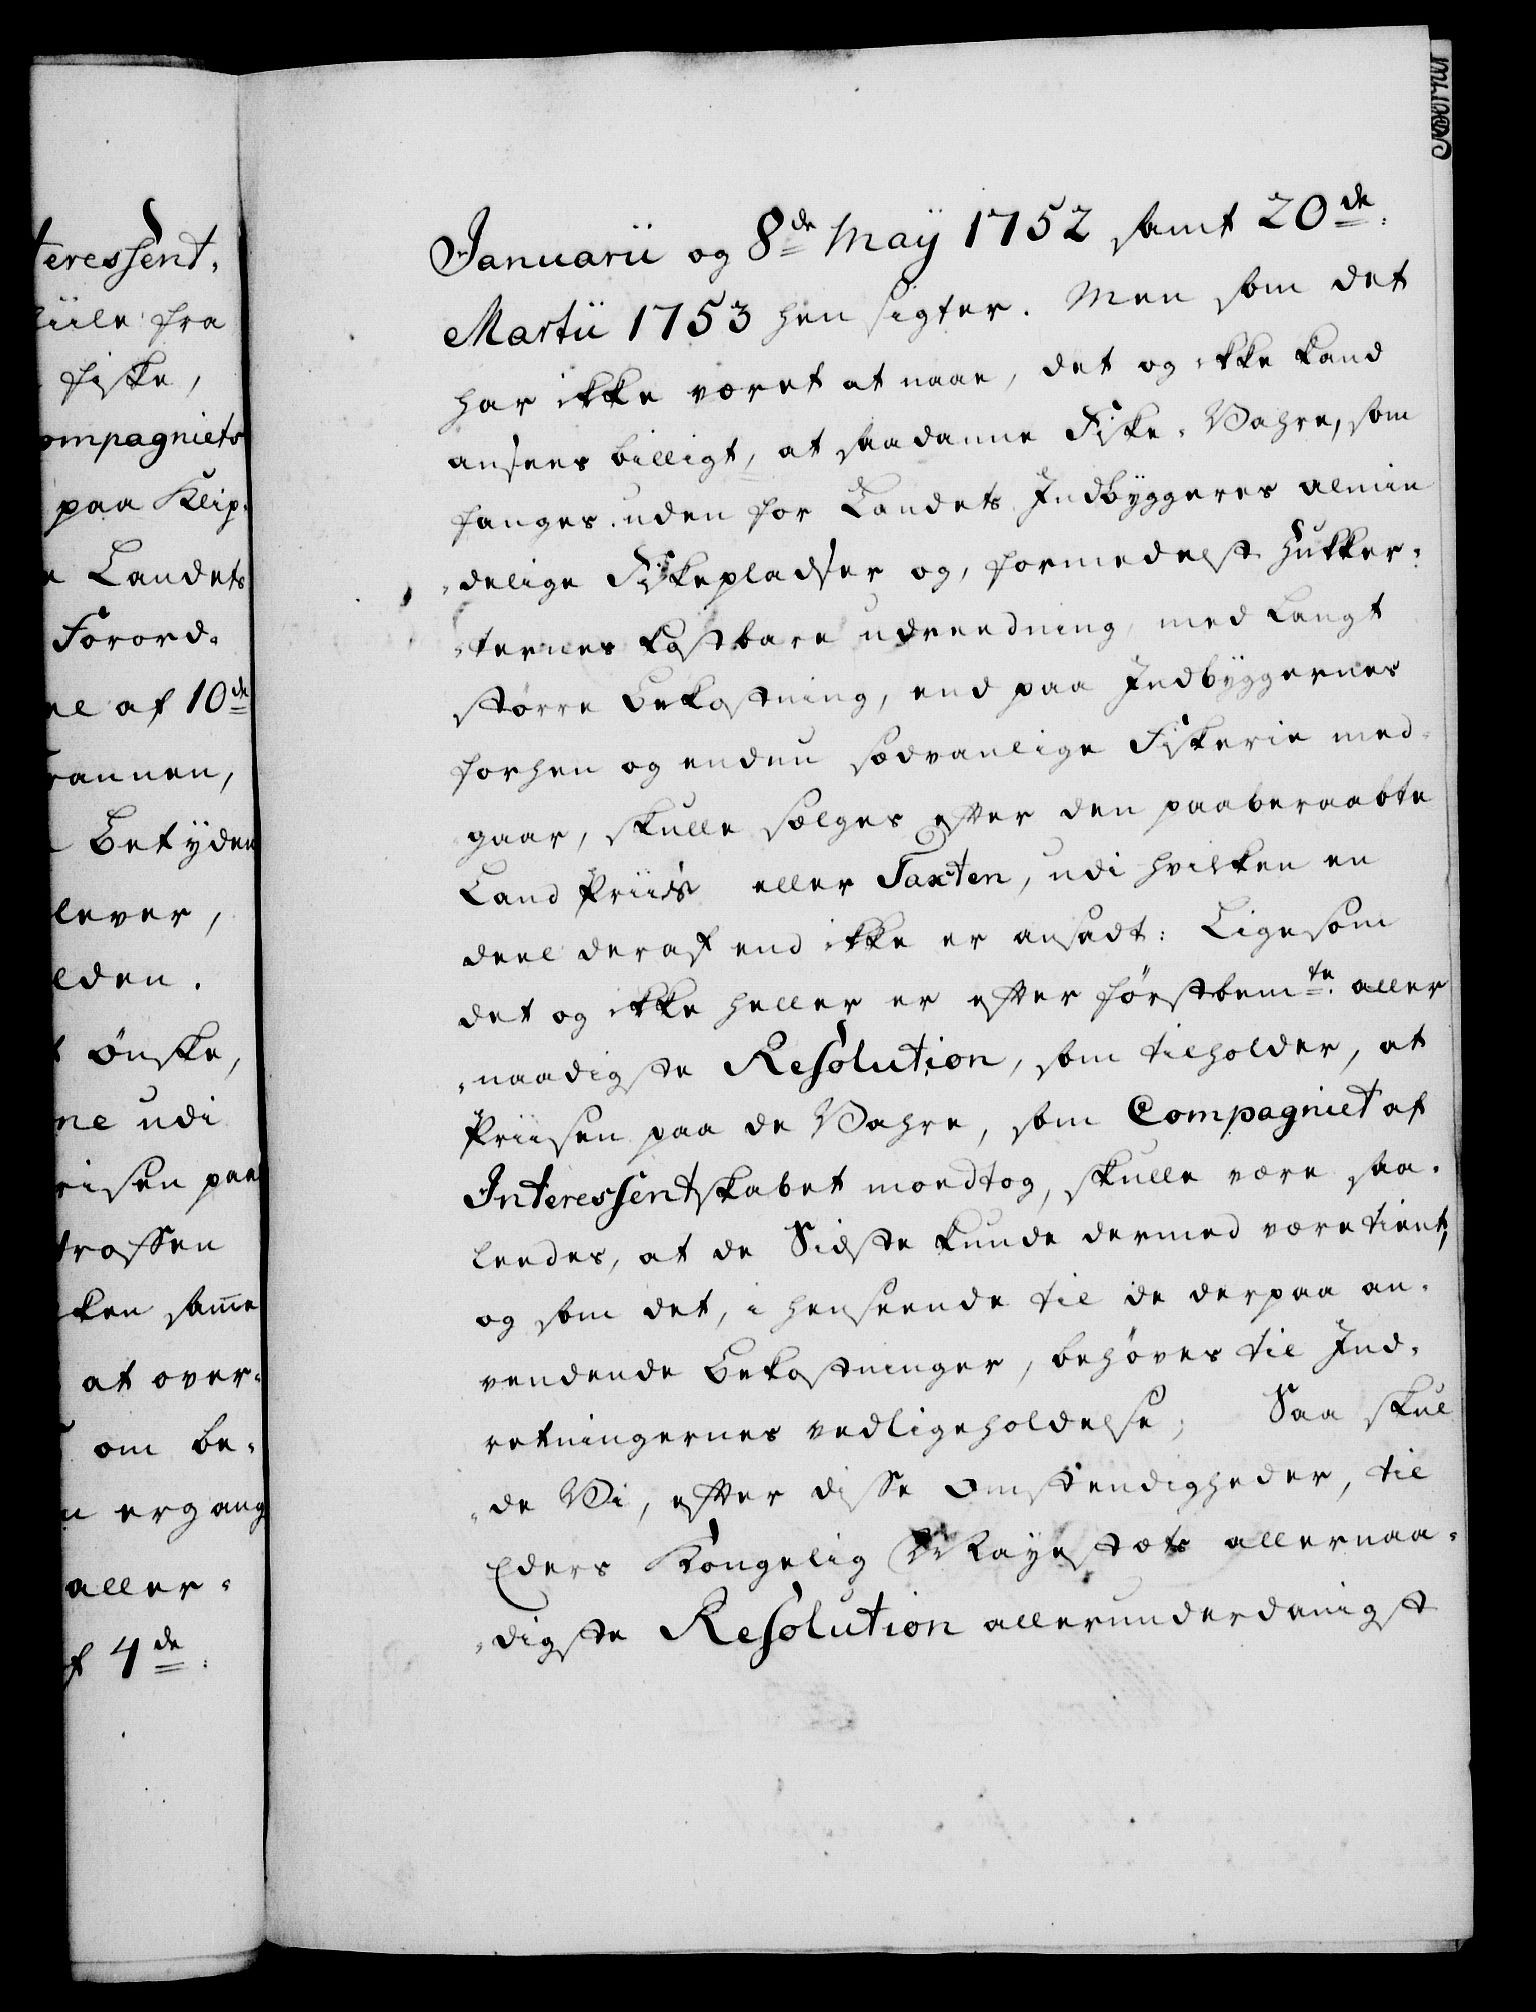 teressent,
hiile fra
fiske,
ompagniets
paa Klip-
e Landets
Forord-
ne af 10de
rannen,
Betyden
lever,
lden.
t ønske,
ne udi
risen paa
trossen
ken same
at over-
om be-
n ergang
aller-
f 4de
Januarii og 8de Maÿ 1752 samt 20de
Martii 1753 hensigter. Men som det
har ikke været at naae, det og ikke kand
ansees billigt, at saadanne Fiske-Vahre, som
fanges uden for Landets Indbÿggeres almin
delige Fiskepladser og, formedelst Hukker-
ternes kostbare udreedning, med langt
større Bekostning, end paa Indbÿggernes
forhen og endnu sædvanlige Fiskerie med-
gaar, skulle sælges efter den paaberaabte
Land Priis eller Taxten, udi hvilken en
deel deraf end ikke er ansadt: Ligesom
det og ikke heller er efter førstbemte aller
naadigste Resolution, som tilholder, at
Priisen paa de Vahre, som Compagniet af
Interessentskabet moedtog, skulle være saa-
leedes, at de Sidste kunde dermed være tient,
og som det, i henseende til de derpaa an-
vendende Bekostninger, behøves til Ind-
retningernes vedligeholdelse; Saa skul
de Vi, efter disse Omstendigheder, til
Eders Kongelig Mayestæts allernaa-
digste Resolution allerunderdanigst